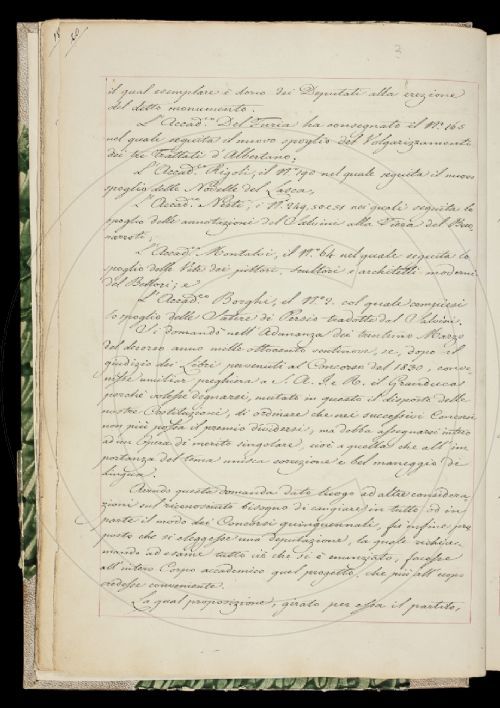 3
il qual esemplare è dono dei Deputati alla erezione
del detto monumento.
L'Accad.co Del Furia ha consegnato il N.o 165
nel quale seguita il nuovo spoglio del Volgarizzamento
dei tre Trattati d'Albertano;
L'Accad.co Rigoli, il N.o 190 nel quale seguita il nuovo
spoglio delle Novelle del Lasca;
L'Accad.co Nesti, i N.i 249, 50 e 51 nei quali seguita lo
spoglio delle annotazioni del Salvini alla Fiera del Buo,
narroti;
L'Accad.co Montalvi, il N.o 64 nel quale seguita lo
spoglio delle Vite dei pittori, scultori e architetti moderni
del Bellori; e
L'Accad.co Borghi, il N.o 2. col quale compiesi
lo spoglio delle Satire di Persio tradotte dal Salvini.
Si domandò nell'Adunanza dei trentuno Marzo
del decorso anno mille ottocento ventinove, se, dopo il
giudizio dei Libri pervenuti al Concorso del 1830, conve,
nisse umiliar preghiera a S. A. I. e R. il Granduca
perchè volesse degnarsi, mutato in questo il disposto delle
nostre Costituzioni, di ordinare che nei successivi Concorsi
non più possa il premio dividersi, ma debba assegnarsi intero
ad un Opera di merito singolare, cioè a quella che all'im,
portanza del tema unisca correzione e bel maneggio di
Lingua.
Avendo questa domanda dato luogo ad altre considera,
zioni sul riconosciuto bisogno di cangiare in tutto, od in
parte il modo dei Concorsi quinquennali, fu infine pro
posto che si eleggesse una deputazione, la quale richia,
mando ad esame tutto ciò che si è enunziato, facesse
all'intero Corpo accademico quel progetto, che più all'uopo
credesse conveniente.
La qual proposizione, girato per essa il partito,